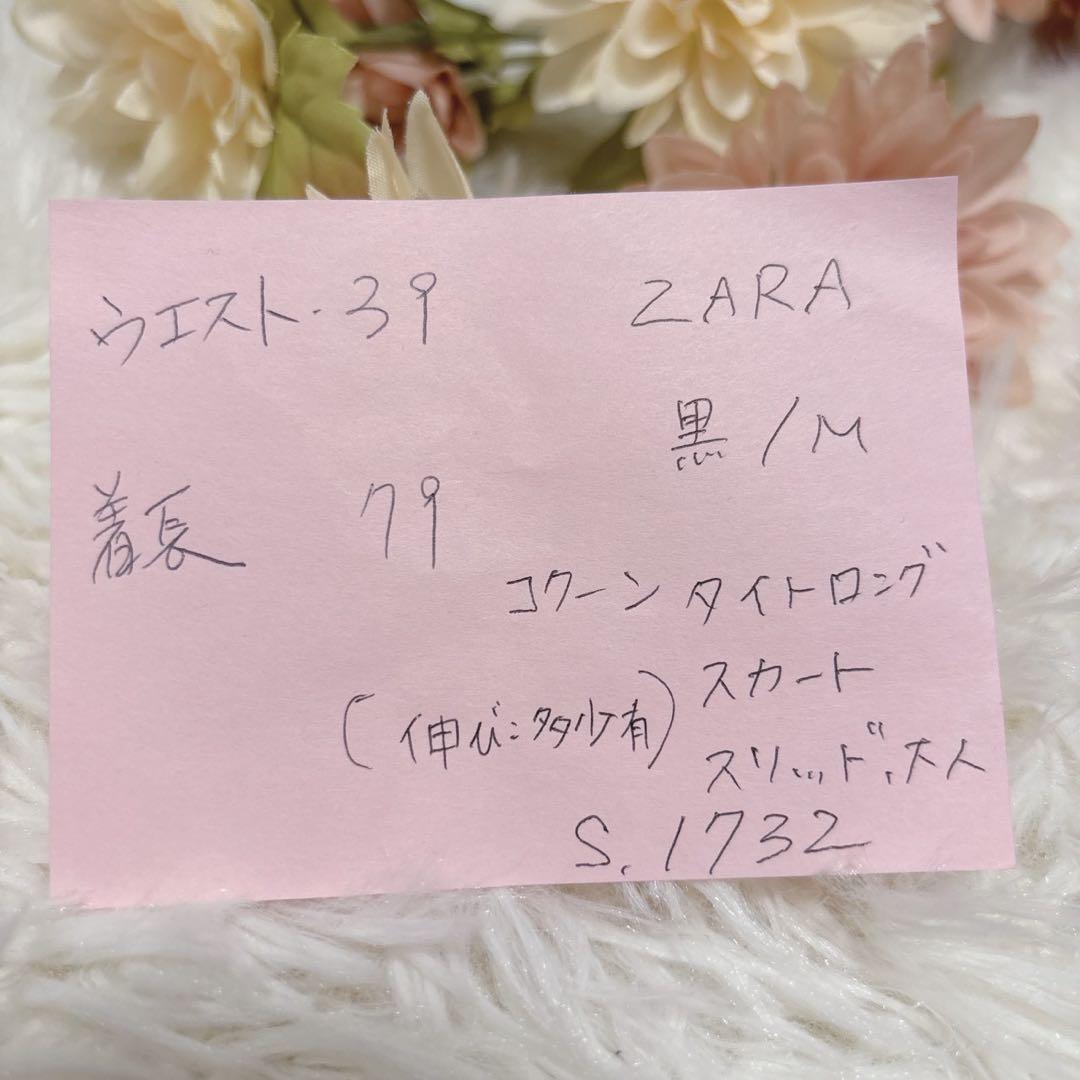 ウエスト・39
ZARA
黒/M
着長 79
コクーンタイトロング
スカート
(伸び:多少有)
スリッド、大人
S.1732